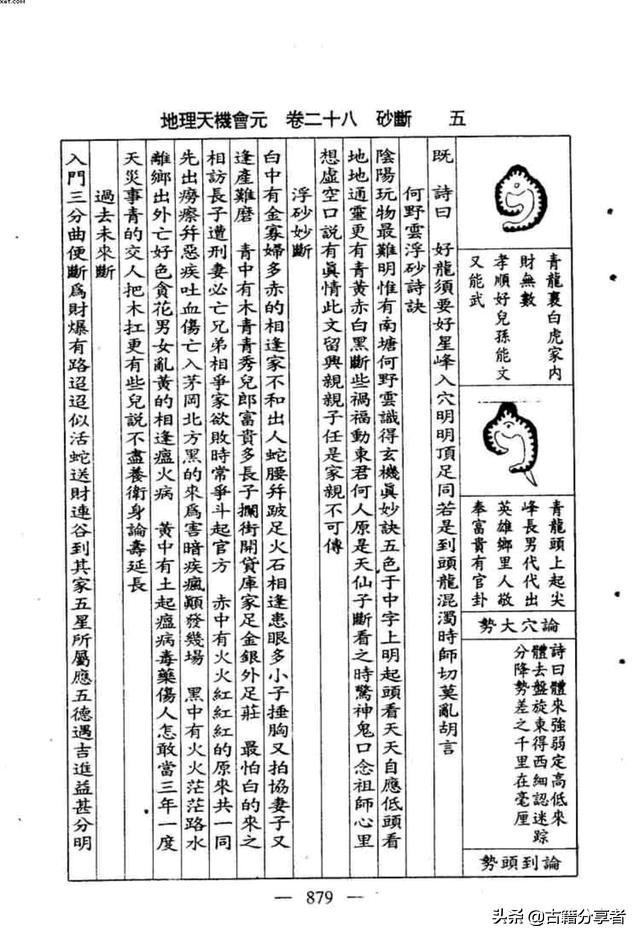 xet.com
地理天機會元　卷二十八　砂斷　五
青龍裏白虎家内
財無數
孝順好兒孫能文
又能武
青龍頭上起尖
峰長男代代出
英雄鄉里人敬
奉富貴有官卦
論穴大勢
詩曰體來強弱定高低來
體去盤旋東得西細認迷踪
分降勢差之千里在毫厘
論到頭勢
既　詩曰　好龍須要好星峰入穴明明頂足同若是到頭龍混濁時師切莫亂胡言
何野雲浮砂詩訣
陰陽玩物最難明惟有南塘何野雲識得玄機眞妙訣五色于中字上明起頭看天天自應低頭看
地地通靈更有青黄赤白黑斷些禍福動東君何人原是天仙子斷看之時驚神鬼口念祖師心里
想虛空口説有眞情此文留與親親子任是家親不可傳
浮砂妙斷
白中有金寡婦多赤的相逢家不和出人蛇腰幷跛足火石相逢患眼多小子捶胸又拍協妻子又
逢產難磨　青中有木青青秀兒郎富貴多長子攔街開貸庫家足金銀外足莊　最怕白的來之
相訪長子遭刑妻必亡兄弟相爭家欲敗時常爭斗起官方　赤中有火火紅紅紅的原來共一同
先出癆瘵幷惡疾吐血傷亡入茅岡北方黑的來爲害暗疾瘋顛發幾場　黑中有火火茫茫路水
離鄉出外亡好色貪花男女亂黄的相逢瘟火病　黄中有土起瘟病毒藥傷人怎敢當三年一度
天災事青的交人把木扛更有些兒説不盡養衛身論壽延長
過去未來斷
入門三分曲便斷爲財爆有路迢迢似活蛇送財連谷到其家五星所屬應五德遇吉進益甚分明
— 879 —
头条 @古籍分享者